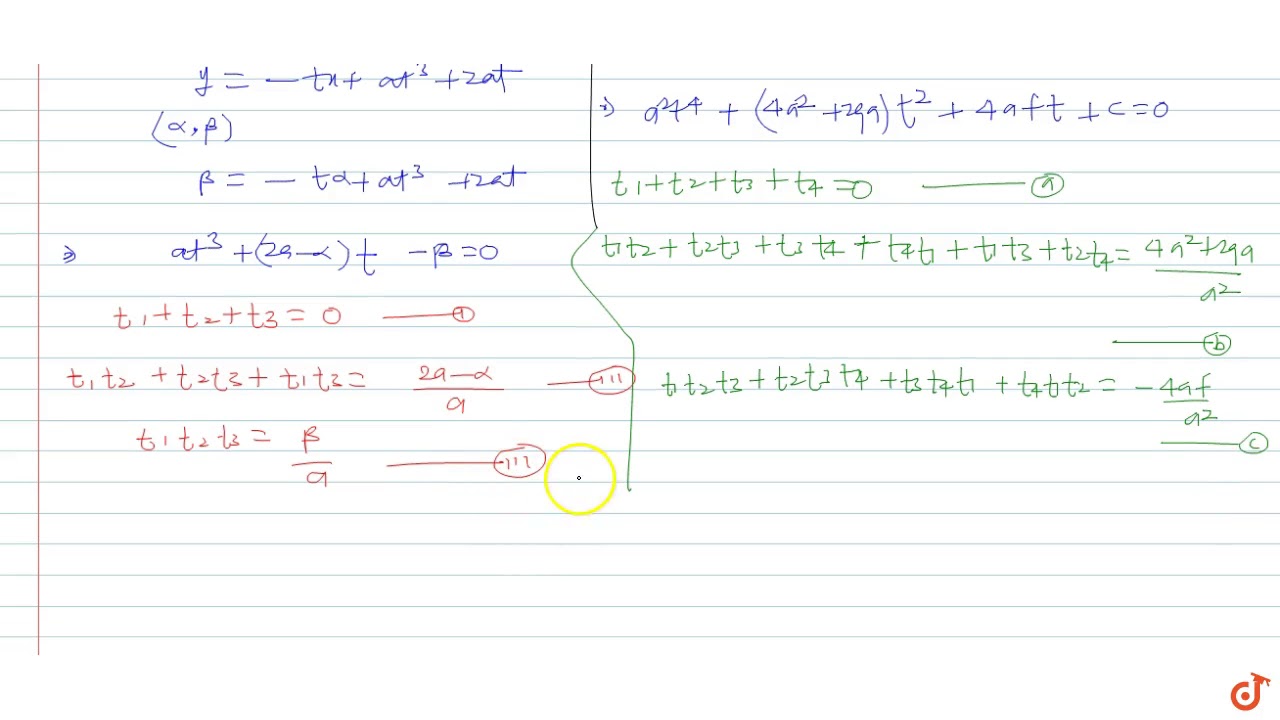 y = - tx + at³ + 2at
(α, β)
β = - tα + at³ + 2at
⇒ at³ + (2a - α) t - β = 0
t₁ + t₂ + t₃ = 0 —— ①
t₁t₂ + t₂t₃ + t₁t₃ = (2a - α)/a —— (III)
t₁ t₂ t₃ = β/a —— (III)
⇒ a²t⁴ + (4a² + 2ga) t² + 4aft + c = 0
t₁ + t₂ + t₃ + t₄ = 0 —— ⓐ
t₁t₂ + t₂t₃ + t₃t₄ + t₄t₁ + t₁t₃ + t₂t₄ = (4a² + 2ga)/a²
—— ⓑ
t₁t₂t₃ + t₂t₃t₄ + t₃t₄t₁ + t₄t₁t₂ = - 4af/a²
—— ⓒ